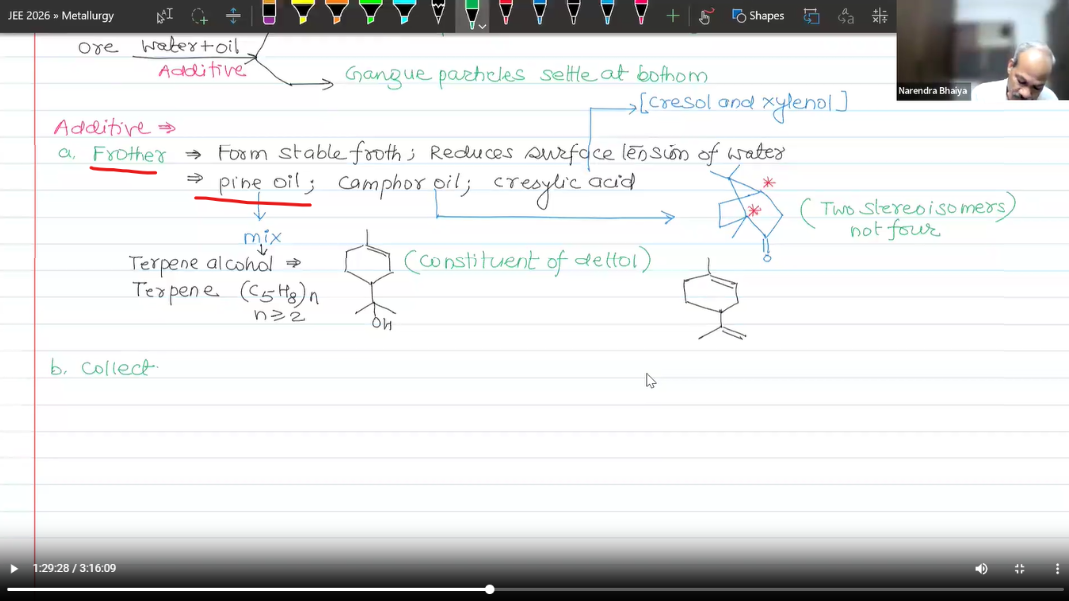 JEE 2026 » Metallurgy
Shapes
Narendra Bhaiya
Ore water+oil
Additive
Gangue particles settle at bottom
[cresol and xylenol]
Additive ⇒
a. Frother ⇒ Form stable froth; Reduces surface tension of water
⇒ pine oil; camphor oil; cresylic acid
(Two stereoisomers)
not four
mix
Terpene alcohol ⇒
(constituent of dettol)
Terpene (C5H8)n
n≥2
OH
O
b. Collect
1:29:28 / 3:16:09